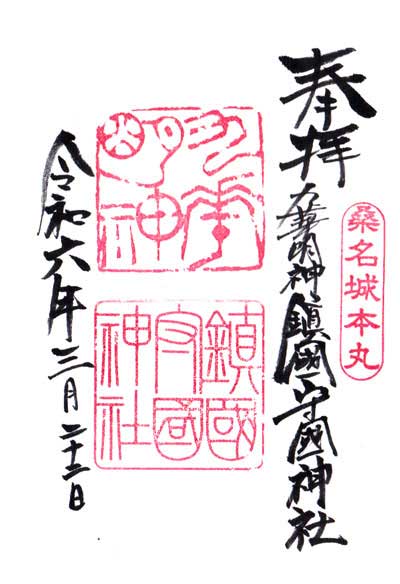 桑名城本丸
奉拝
九華明神 鎮國守國神社
九華明神
鎮國守國神社
令和六年三月二十二日